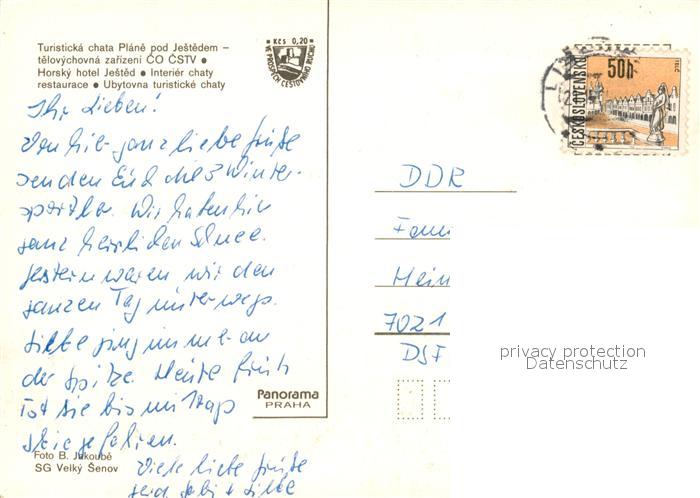 Turistická chata Pláně pod Ještědem –
tělovýchovná zařízení ČO ČSTV •
Horský hotel Ještěd • Interiér chaty
restaurace • Ubytovna turistické chaty
Kčs 0,20
VE PROSPĚCH CESTOVNÍHO RUCHU
ČESKOSLOVENSKO
50h
TELČ
Ihr Lieben!
Von hier ganz liebe Grüße
senden Euch die 3 Winter-
sportler. Wir haben hier
ganz herrlichen Schnee.
Gestern waren wir den
ganzen Tag unterwegs.
Silke ging immer an
der Spitze. Heute früh
ist sie bis mittag
Ski gefahren.
Viele liebe Grüße
Silke
DDR
Fam
Hein
7021
DSF
privacy protection
Datenschutz
Panorama
PRAHA
Foto B. Jakoubě
SG Velký Šenov